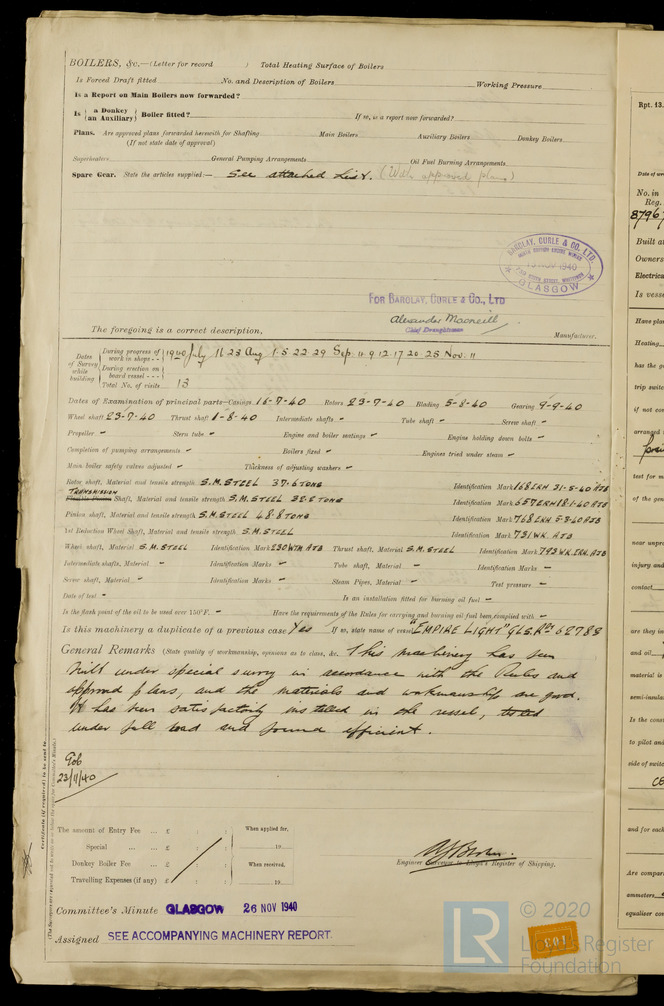 BOILERS, &c.—(Letter for record ) Total Heating Surface of Boilers
Is Forced Draft fitted No. and Description of Boilers Working Pressure
Is a Report on Main Boilers now forwarded?
Is { a Donkey / an Auxiliary } Boiler fitted? If so, is a report now forwarded?
Plans. Are approved plans forwarded herewith for Shafting Main Boilers Auxiliary Boilers Donkey Boilers
(If not state date of approval)
Superheaters General Pumping Arrangements Oil Fuel Burning Arrangements
Spare Gear. State the articles supplied:— See attached List. (With approved plans)
BARCLAY, CURLE & CO., LTD.
1940
GLASGOW
FOR BARCLAY, CURLE & CO., LTD
Alexander Macneill
Chief Draughtsman
The foregoing is a correct description, Manufacturer.
Dates of Survey while building
During progress of work in shops - - 1940 July 11 23 Aug 1.5 22 29 Sep. 4 9.12.17 20.25 Nov. 11
During erection on board vessel - - -
Total No. of visits 13
Dates of Examination of principal parts—Casings 16-7-40 Rotors 23-7-40 Blading 5-8-40 Gearing 9-9-40
Wheel shaft 23-7-40 Thrust shaft 1-8-40 Intermediate shafts - Tube shaft - Screw shaft -
Propeller - Stern tube - Engine and boiler seatings - Engine holding down bolts -
Completion of pumping arrangements - Boilers fixed - Engines tried under steam -
Main boiler safety valves adjusted - Thickness of adjusting washers -
Rotor shaft, Material and tensile strength S.M. STEEL 37.6 TONS Identification Mark 168 LRH 31-5-40 AJB
TRANSMISSION
Flexible Pinion Shaft, Material and tensile strength S.M. STEEL 32.8 TONS Identification Mark 657 LRH 18-1-40 AJB
Pinion shaft, Material and tensile strength S.M. STEEL 48.8 TONS Identification Mark 768 LRH 5-3-40 AJB
1st Reduction Wheel Shaft, Material and tensile strength S.M. STEEL Identification Mark 731 WK AJB
Wheel shaft, Material S.M. STEEL Identification Mark 230 WTM AJB Thrust shaft, Material S.M. STEEL Identification Mark 793 WK. LRH. AJB
Intermediate shafts, Material - Identification Marks - Tube shaft, Material - Identification Marks -
Screw shaft, Material - Identification Marks - Steam Pipes, Material - Test pressure -
Date of test - Is an installation fitted for burning oil fuel -
Is the flash point of the oil to be used over 150°F. - Have the requirements of the Rules for carrying and burning oil fuel been complied with -
Is this machinery a duplicate of a previous case Yes If so, state name of vessel "EMPIRE LIGHT" GLS. Rpt 62788
General Remarks (State quality of workmanship, opinions as to class, &c. This machinery has been
built under special survey in accordance with the Rules and
approved plans, and the materials and workmanship are good.
It has been satisfactorily installed in the vessel, tested
under full load and found efficient.
23/11/40
The amount of Entry Fee ... £ : : When applied for,
Special ... ... £ : : 19
Donkey Boiler Fee ... £ : : When received,
Travelling Expenses (if any) £ : : 19
Engineer Surveyor to Lloyd's Register of Shipping.
Committee's Minute GLASGOW 26 NOV 1940
Assigned SEE ACCOMPANYING MACHINERY REPORT.
Certificate (if required) to be sent to
(The Surveyors are requested not to write on or below the space for Committee's Minute.)
LR
© 2020
Lloyd's Register
Foundation
Rpt. 13.
No. in
Reg.
8796
Built at
Owners
Electrical
Is vessel
Have plans
Heating
has the go
trip switch
if not co
arranged
test for m
of the gen
near unpro
injury and
contact
are they in
and oil
material is
semi-insula
Is the const
to pilot and
side of switc
and for each
Are compar
ammeters
equaliser con